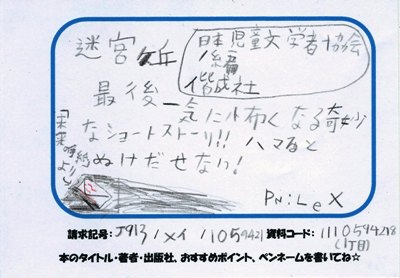 迷宮ヶ丘
日本児童文学者協会
/編
偕成社
最後一気に怖くなる奇妙
なショートストーリ!! ハマると
ぬけだせない!
PN:LeX
請求記号:J913/メイ/1059421 資料コード:1110594218
(1丁目)
本のタイトル・著者・出版社、おすすめポイント、ペンネームを書いてね☆